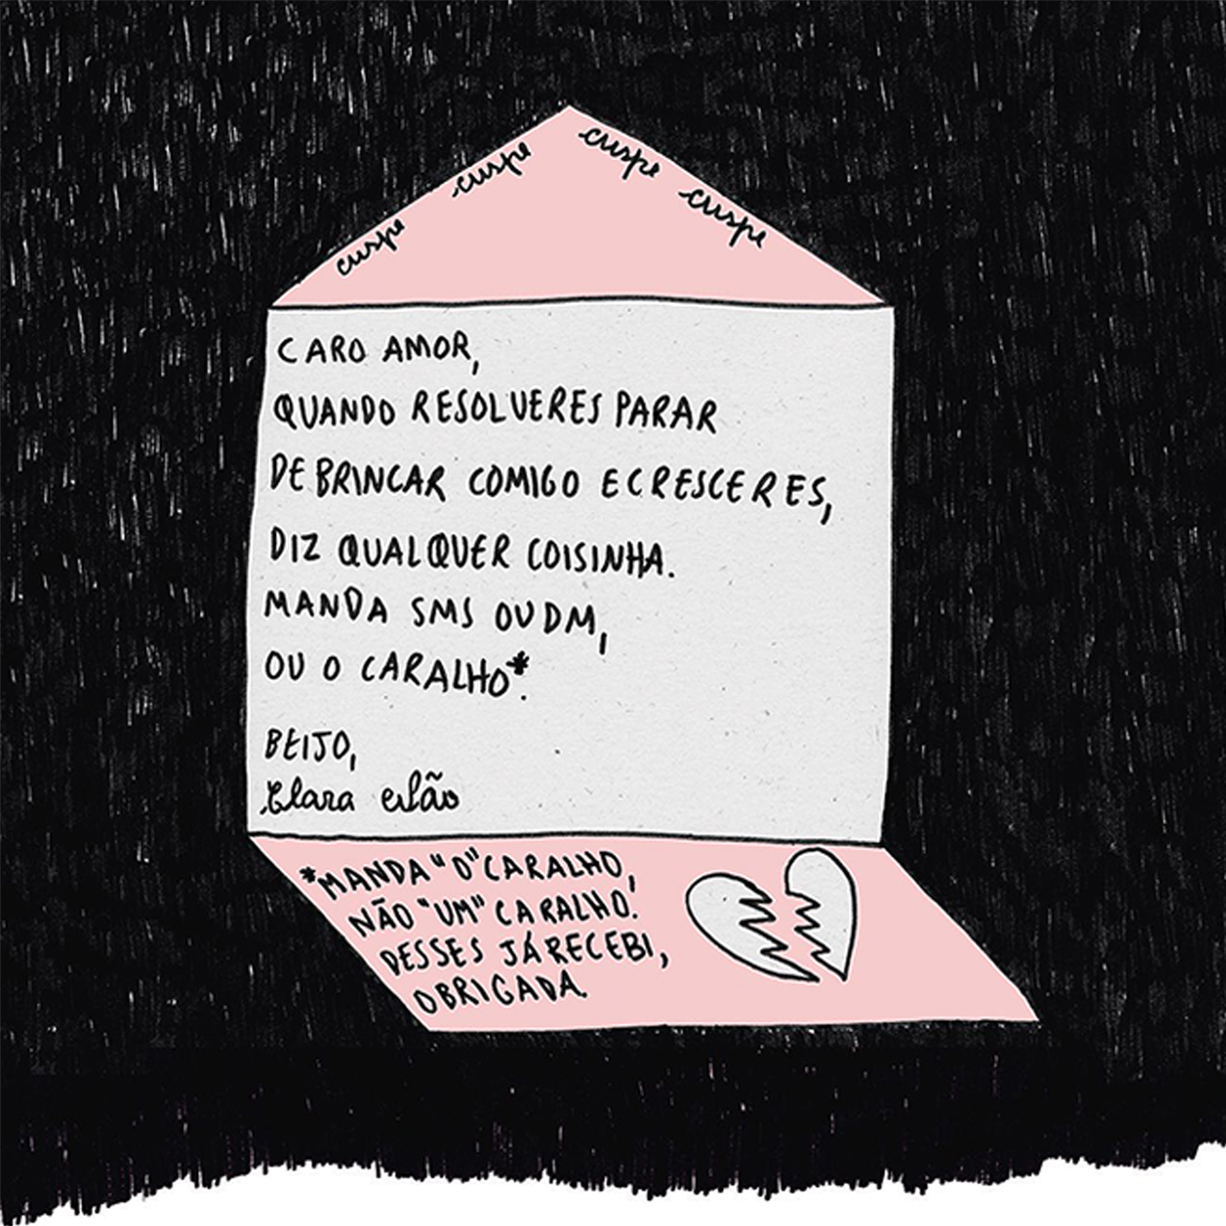 cuspe cuspe cuspe cuspe
CARO AMOR,
QUANDO RESOLVERES PARAR
DE BRINCAR COMIGO E CRESCERES,
DIZ QUALQUER COISINHA.
MANDA SMS OU DM,
OU O CARALHO*.
BEIJO,
Clara ealão
*MANDA "O" CARALHO,
NÃO "UM" CARALHO.
DESSES JÁ RECEBI,
OBRIGADA.